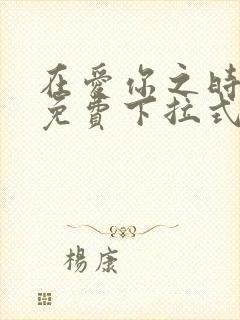 在愛你之時
免費下拉式
楊康